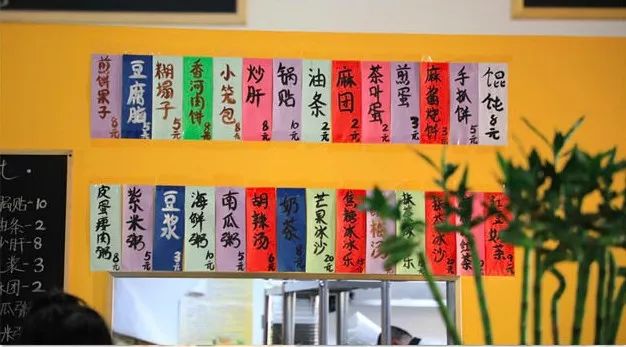 煎饼果子 8元
豆腐脑 5元
糊塌子 5元
香河肉饼 8元
小笼包 8元
炒肝 8元
锅贴 10元
油条 2元
麻团 2元
茶叶蛋 2元
煎蛋 3元
麻酱烧饼 3元
手抓饼 5元
馄饨 8元
皮蛋瘦肉粥 8元
紫米粥 5元
豆浆 3元
海鲜粥 10元
南瓜粥 5元
胡辣汤 6元
奶茶 8元
芒果冰沙 20元
焦糖冰冰乐
冰沙
红茶
奶茶
锅贴-10
油条-2
炒肝-8
浆-3
团-2
瓜粥
米粥